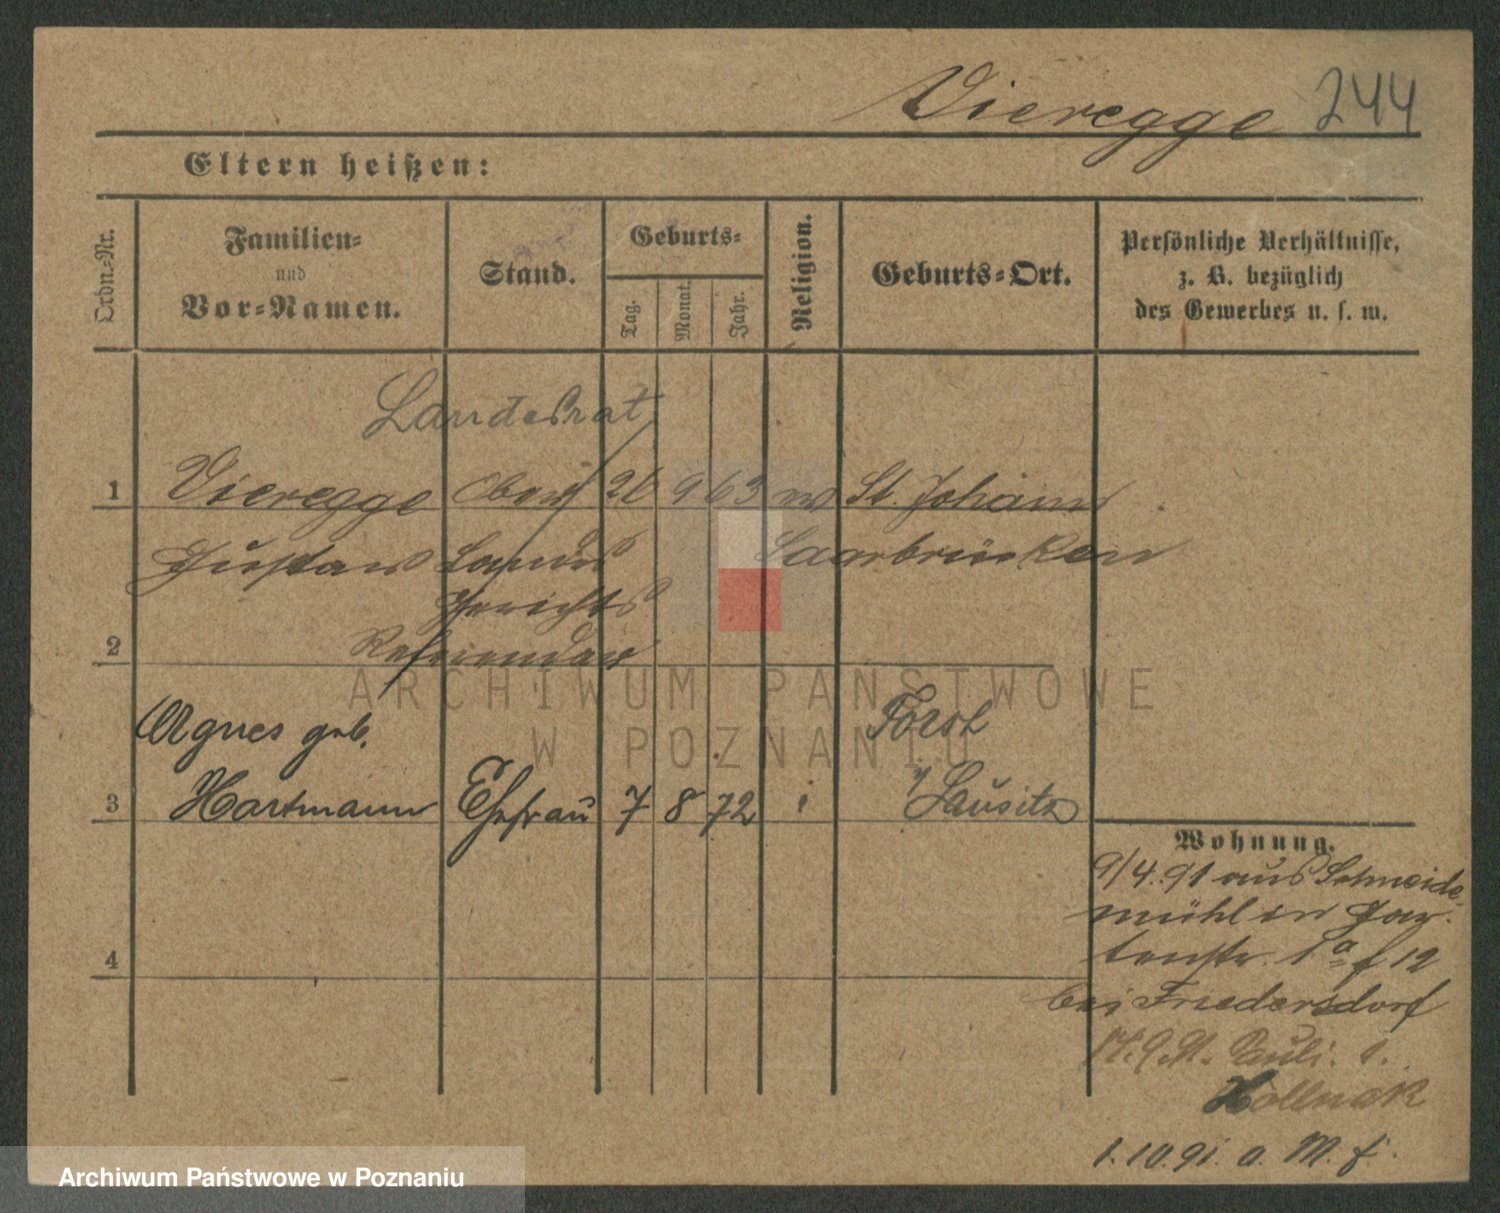 Vieregge 244
Eltern heißen:
Ordn.-Nr.
Familien-
und
Vor-Namen.
Stand.
Geburts-
Tag.
Monat.
Jahr.
Religion.
Geburts-Ort.
Persönliche Verhältnisse,
z. B. bezüglich
des Gewerbes u. s. w.
Landesrat
1 Vieregge 9 63 St. Johann
Gustav Landes Saarbrücken
Gerichts
2 Referendar
ARCHIWUM PAŃSTWOWE
W POZNANIU
Agnes geb. Forst
3 Hartmann Ehefrau 7 8 72 Lausitz
Wohnung.
9/4.91 aus Schneide-
mühl in Gar-
tenstr. 1a 12
bei Friedersdorf
Pauli. 1.
Hollnak
4
1.10.91. a. M. f.
Archiwum Państwowe w Poznaniu